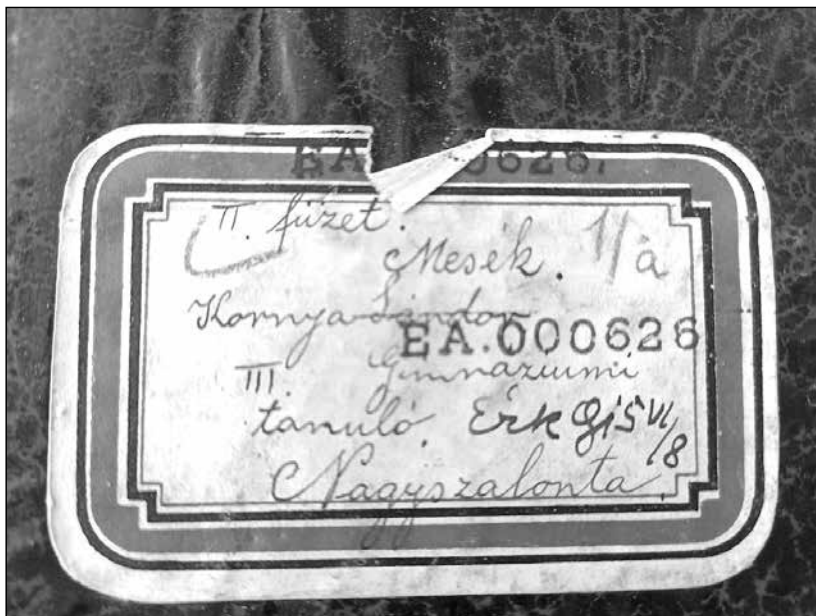 EA.000626.
II. füzet. 1/a
Mesék.
Kornya Sándor
EA.000626
III. Gimnáziumi
tanuló. Érk 915 VI/8
Nagyszalonta.